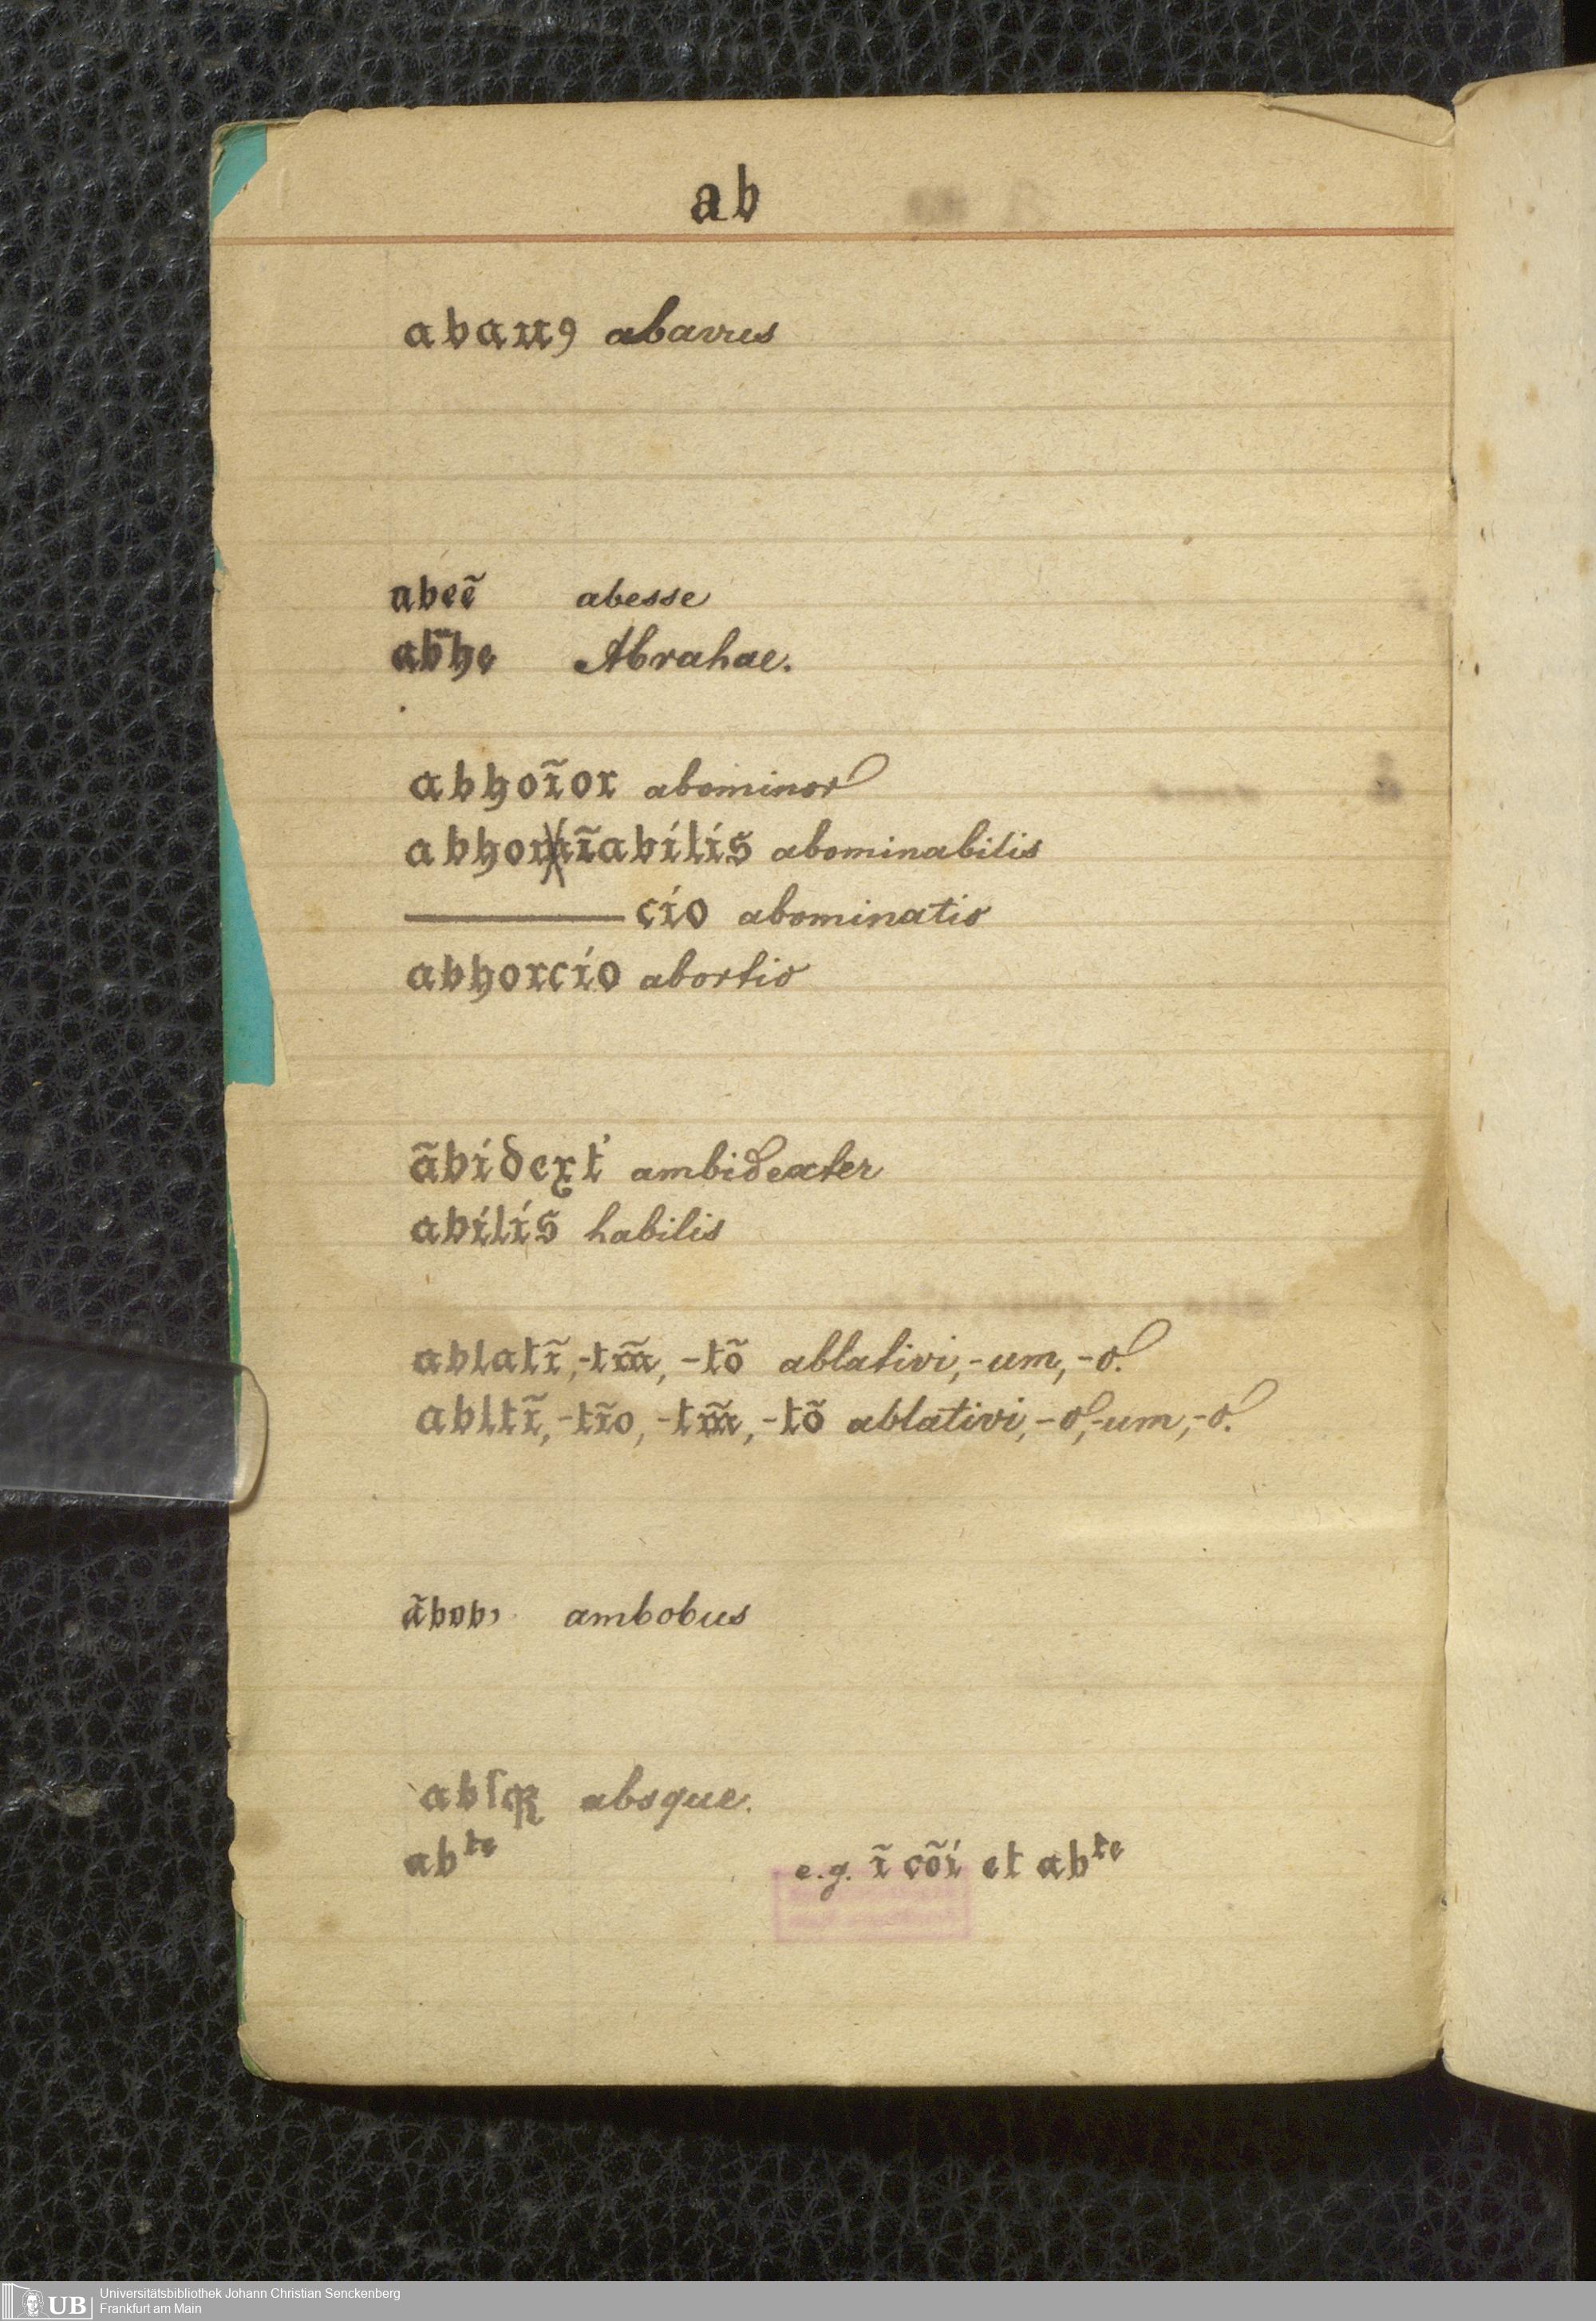 ab
abauꝯ abavus
abeẽ abesse
ab̃he Abrahae.
abhoĩor abominor
abhoĩabilis abominabilis
——— cio abominatio
abhorcio abortio
ãbidext̉ ambidexter
abilis habilis
ablatĩ, -tũm, -tõ ablativi, -um, -o.
abltĩ, -tĩo, -tũm, -tõ ablativi, -o, -um, -o.
ãbobꝫ ambobus
abſqꝫ absque.
abᵗᵉ e.g. ĩ cõi et abᵗᵉ
UB Universitätsbibliothek Johann Christian Senckenberg
Frankfurt am Main